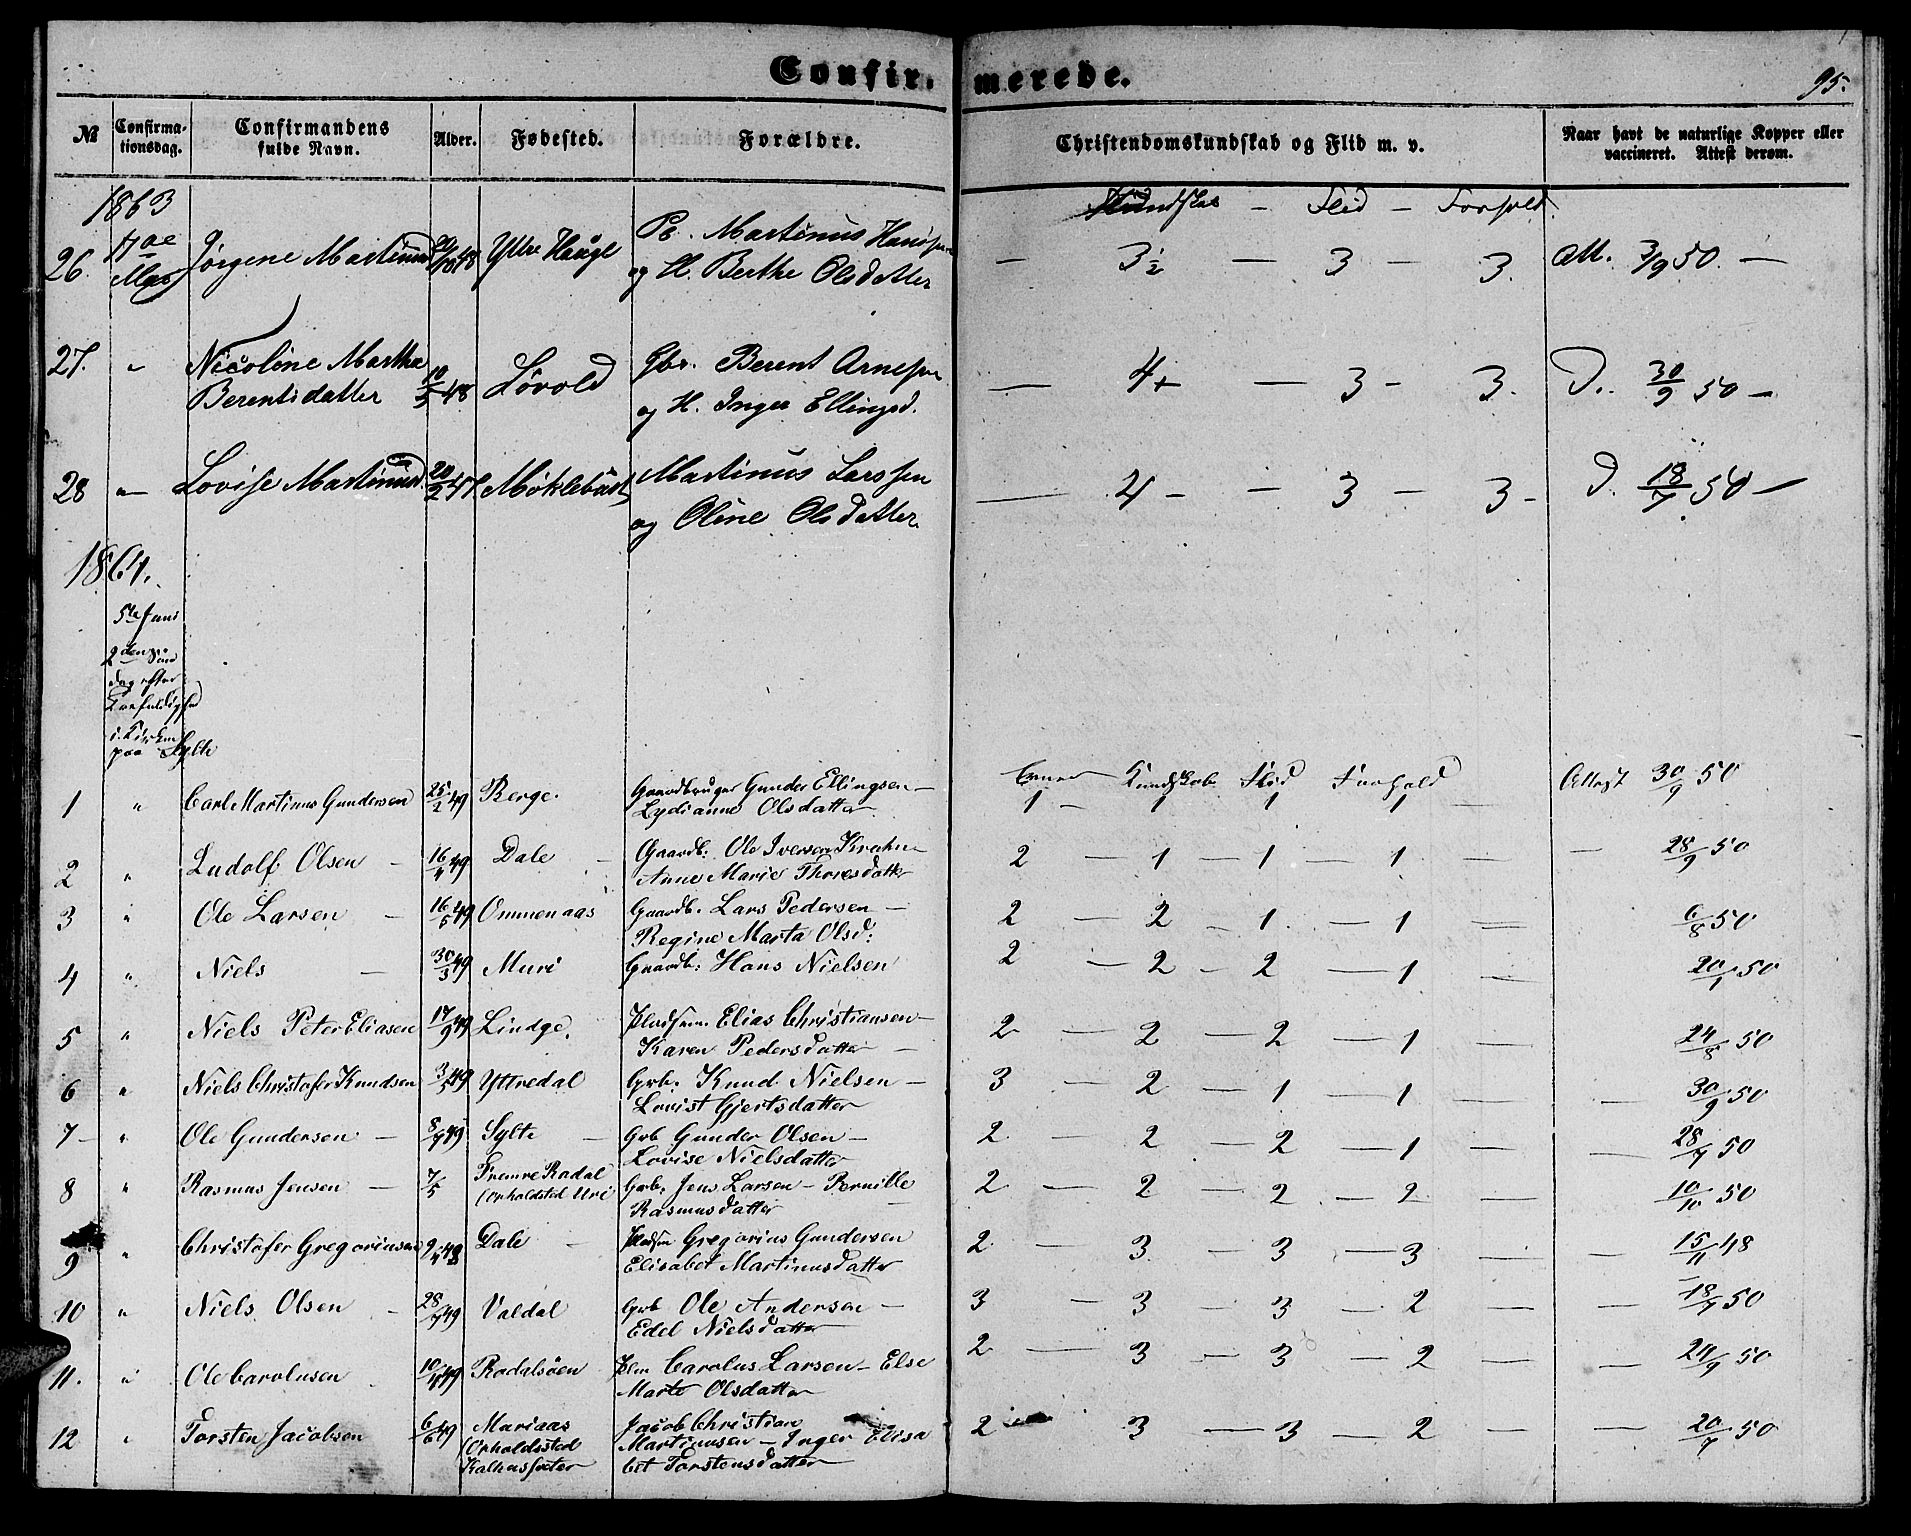 Confir-merede.
95.
№ Confirma-tionsdag. Confirmandens fulde Navn. Alder. Fødested. Forældre. Christendomskundskab og Flid m. v. Naar havt de naturlige Kopper eller vaccineret. Attest derom.
1863 Kundskab – Flid – Forhold.
26. Jørgene Martinusd. Ytre Hauge Martinus Hanssen – 3½ – 3 – 3. Att. 3/9 50. –
og H. Berthe Olsdatter
27. " Nicoline Martha Gbr. Berent Arnesen – 4+ – 3 – 3. D. 30/9 50 –
Berentsdatter 10/3 48 Løvold og H. Inger Ellingsd.
28 " Lovise Martinusd. 20/2 47 Møklebust Martinus Larssen – 4 – – 3 – 3 – D. 18/7 50 –
og Oline Olsdatter
1864.
5te Juni
2den Søn
dag efter
Trefoldighed
i Kirken
paa Sylte
Evner Kundskab Flid Forhold
1 " Carl Martinus Gundersen 25/2 49 Berge. Gaardbruger Gunder Ellingsen – 1 – 1 1 1 – Attest 30/9 50
Lydianne Olsdatter
2 " Ludolf Olsen – 16/4 49 Dale – Gaardb: Ole Iversen Krohn – 2 – 1 – 1 – 1 – – 28/9 50
Anne Marie Thoresdatter
3 " Ole Larsen – 16/5 49 Ommenaas Gaardb. Lars Pedersen – 2 – 2 – 1 – 1 – 6/8 50
Regine Marta Olsd:
4 " Niels – 30/3 49 Muri Gaardb: Hans Nielsen 2 – 2 – 2 – 1 – 20/1 50
5 " Niels Peter Eliasen 17/9 49 Linge. Pladsm. Elias Christiansen – 2 – 2 – 2 – 1 – 24/8 50
Karen Pedersdatter –
6 " Niels Christofer Knudsen 3/5 49 Yttredal Grb. Knud Nielsen – 3 – 2 – 1 – 1 – – 30/9 50
Lovise Gjertsdatter
7 – " Ole Gundersen – 8/7 49 Sylte – Grb Gunder Olsen – 2 – 2 – 2 – 1 – – 28/7 50
Lovise Nielsdatter
8 " Rasmus Jensen – 7/5 Fremre Radal Grb. Jens Larsen – Pernille 2 – 2 – 2 – 2 – 10/10 50
(Opholdsted Uri Rasmusdatter
9 " Christofer Gregoriusen 9/4 48 Dale – Pladsm Gregorius Gundersen 2 – 3 – 3 – 3 – – 15/11 48
Elisabet Martinusdatter
10 " Niels Olsen – 28/7 49 Valdal Grb Ole Andersen – 3 – 3 – 3 – 2 – – 18/7 50
Edel Nielsdatter
11. " Ole Carolusen 10/11 49 Radalsøen Plm Carolus Larsen – Else 2 – 3 – 3 – 2 – – 24/9 50
Marte Olsdatter
12 " Torsten Jacobsen 6/6 49 Mariaas Jacob Christian 2 3 – 3 – 2 – 20/7 50
(Opholdssted Martinusen – Inger Elisa
bet Torstensdatter